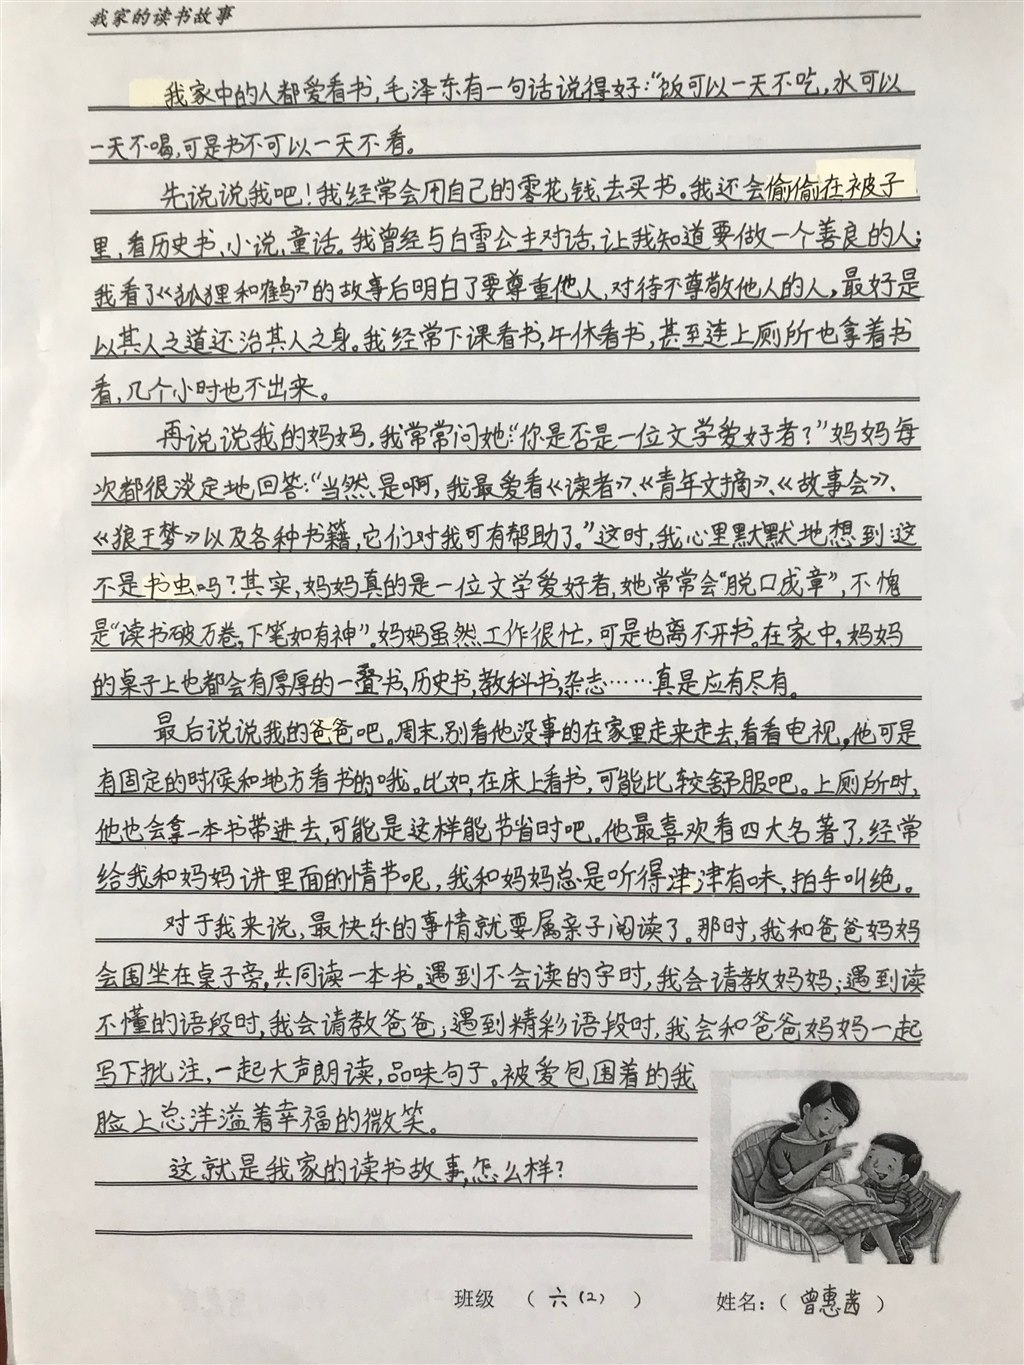 我家的读书故事
我家中的人都爱看书,毛泽东有一句话说得好:“饭可以一天不吃,水可以
一天不喝,可是书不可以一天不看。
先说说我吧!我经常会用自己的零花钱去买书。我还会偷偷在被子
里,看历史书、小说、童话。我曾经与白雪公主对话,让我知道要做一个善良的人;
我看了《狐狸和鹤》的故事后明白了要尊重他人,对待不尊敬他人的人,最好是
以其人之道还治其人之身。我经常下课看书,午休看书,甚至连上厕所也拿着书
看,几个小时也不出来。
再说说我的妈妈,我常常问她:“你是否是一位文学爱好者?”妈妈每
次都很淡定地回答:“当然是啊,我最爱看《读者》、《青年文摘》、《故事会》、
《狼王梦》以及各种书籍,它们对我可有帮助了。”这时,我心里默默地想到:这
不是书虫吗?其实,妈妈真的是一位文学爱好者,她常常会“脱口成章”,不愧
是“读书破万卷,下笔如有神”。妈妈虽然工作很忙,可是也离不开书。在家中,妈妈
的桌子上也都会有厚厚的一叠书,历史书,教科书,杂志……真是应有尽有。
最后说说我的爸爸吧。周末,别看他没事的在家里走来走去,看看电视。他可是
有固定的时候和地方看书的哦。比如,在床上看书,可能比较舒服吧。上厕所时,
他也会拿一本书带进去,可能是这样能节省时吧。他最喜欢看四大名著了,经常
给我和妈妈讲里面的情节呢,我和妈妈总是听得津津有味,拍手叫绝。
对于我来说,最快乐的事情就要属亲子阅读了。那时,我和爸爸妈妈
会围坐在桌子旁,共同读一本书。遇到不会读的字时,我会请教妈妈;遇到读
不懂的语段时,我会请教爸爸;遇到精彩语段时,我会和爸爸妈妈一起
写下批注,一起大声朗读,品味句子。被爱包围着的我
脸上总洋溢着幸福的微笑。
这就是我家的读书故事,怎么样?
班级 ( 六(2) ) 姓名:( 曾惠茜 )